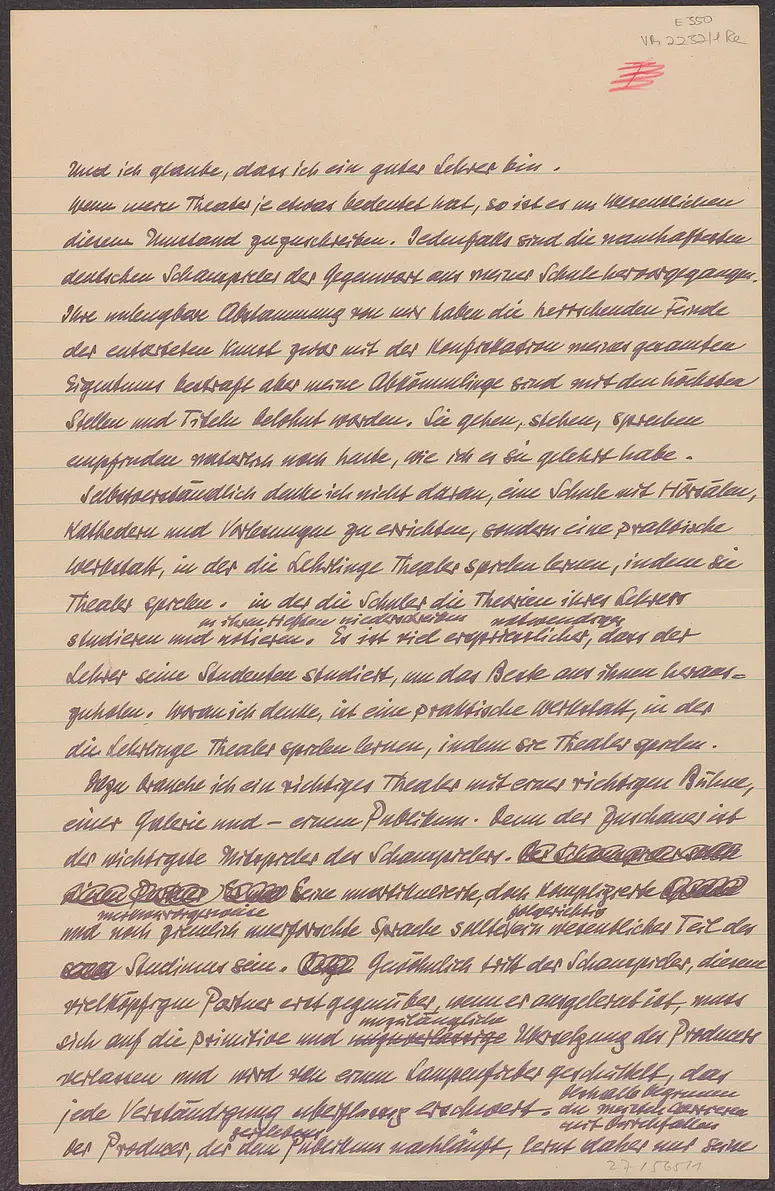 E 350
VM 2232/1 Re
Und ich glaube, dass ich ein guter Lehrer bin.
Wenn mein Theater je etwas bedeutet hat, so ist es im Wesentlichen
diesem Umstand zuzuschreiben. Jedenfalls sind die namhaftesten
deutschen Schauspieler der Gegenwart aus meiner Schule hervorgegangen.
Ihre unleugbare Abstammung von mir haben die herrschenden Feinde
der entarteten Kunst zwar mit der Konfiskation meines gesamten
Eigentums bestraft aber meine Abkömmlinge sind mit den höchsten
Stellen und Titeln belohnt worden. Sie gehen, stehen, sprechen
empfinden natürlich noch heute, wie ich es sie gelehrt habe.
Selbstverständlich denke ich nicht daran, eine Schule mit Hörsälen,
Kathedern und Vorlesungen zu errichten, sondern eine praktische
Werkstatt, in der die Lehrlinge Theater spielen lernen, indem sie
Theater spielen. in der die Schüler die Theorien ihres Lehrers
in ihren Heften niederschreiben notwendig
studieren und notieren. Es ist viel erspriesslicher, dass der
Lehrer seine Studenten studiert, um das Beste aus ihnen heraus-
zuholen. Woran ich denke, ist eine praktische Werkstatt, in der
die Lehrlinge Theater spielen lernen, indem sie Theater spielen.
Dazu brauche ich ein richtiges Theater mit einer richtigen Bühne,
einer Galerie und – einem Publikum. Denn der Zuschauer ist
der wichtigste Mitspieler des Schauspielers.
Seine unartikulierte, doch komplizierte
merkwürdigerweise folgerichtig
und noch ziemlich unerforschte Sprache sollte ein wesentlicher Teil des
Studiums sein. Gewöhnlich tritt der Schauspieler, diesem
vielköpfigen Partner erst gegenüber, wenn er ausgelernt ist, muss
unzulängliche
sich auf die primitive und unzuverlässige Übersetzung des Producers
verlassen und wird von einem Lampenfieber geschüttelt, das
deshalb beginnen
jede Verständigung überflüssig erschwert. die meisten Carrieren
mit Durchfällen
der Producer, der dem Publikum nachläuft, lernt daher nur seine
27/56511